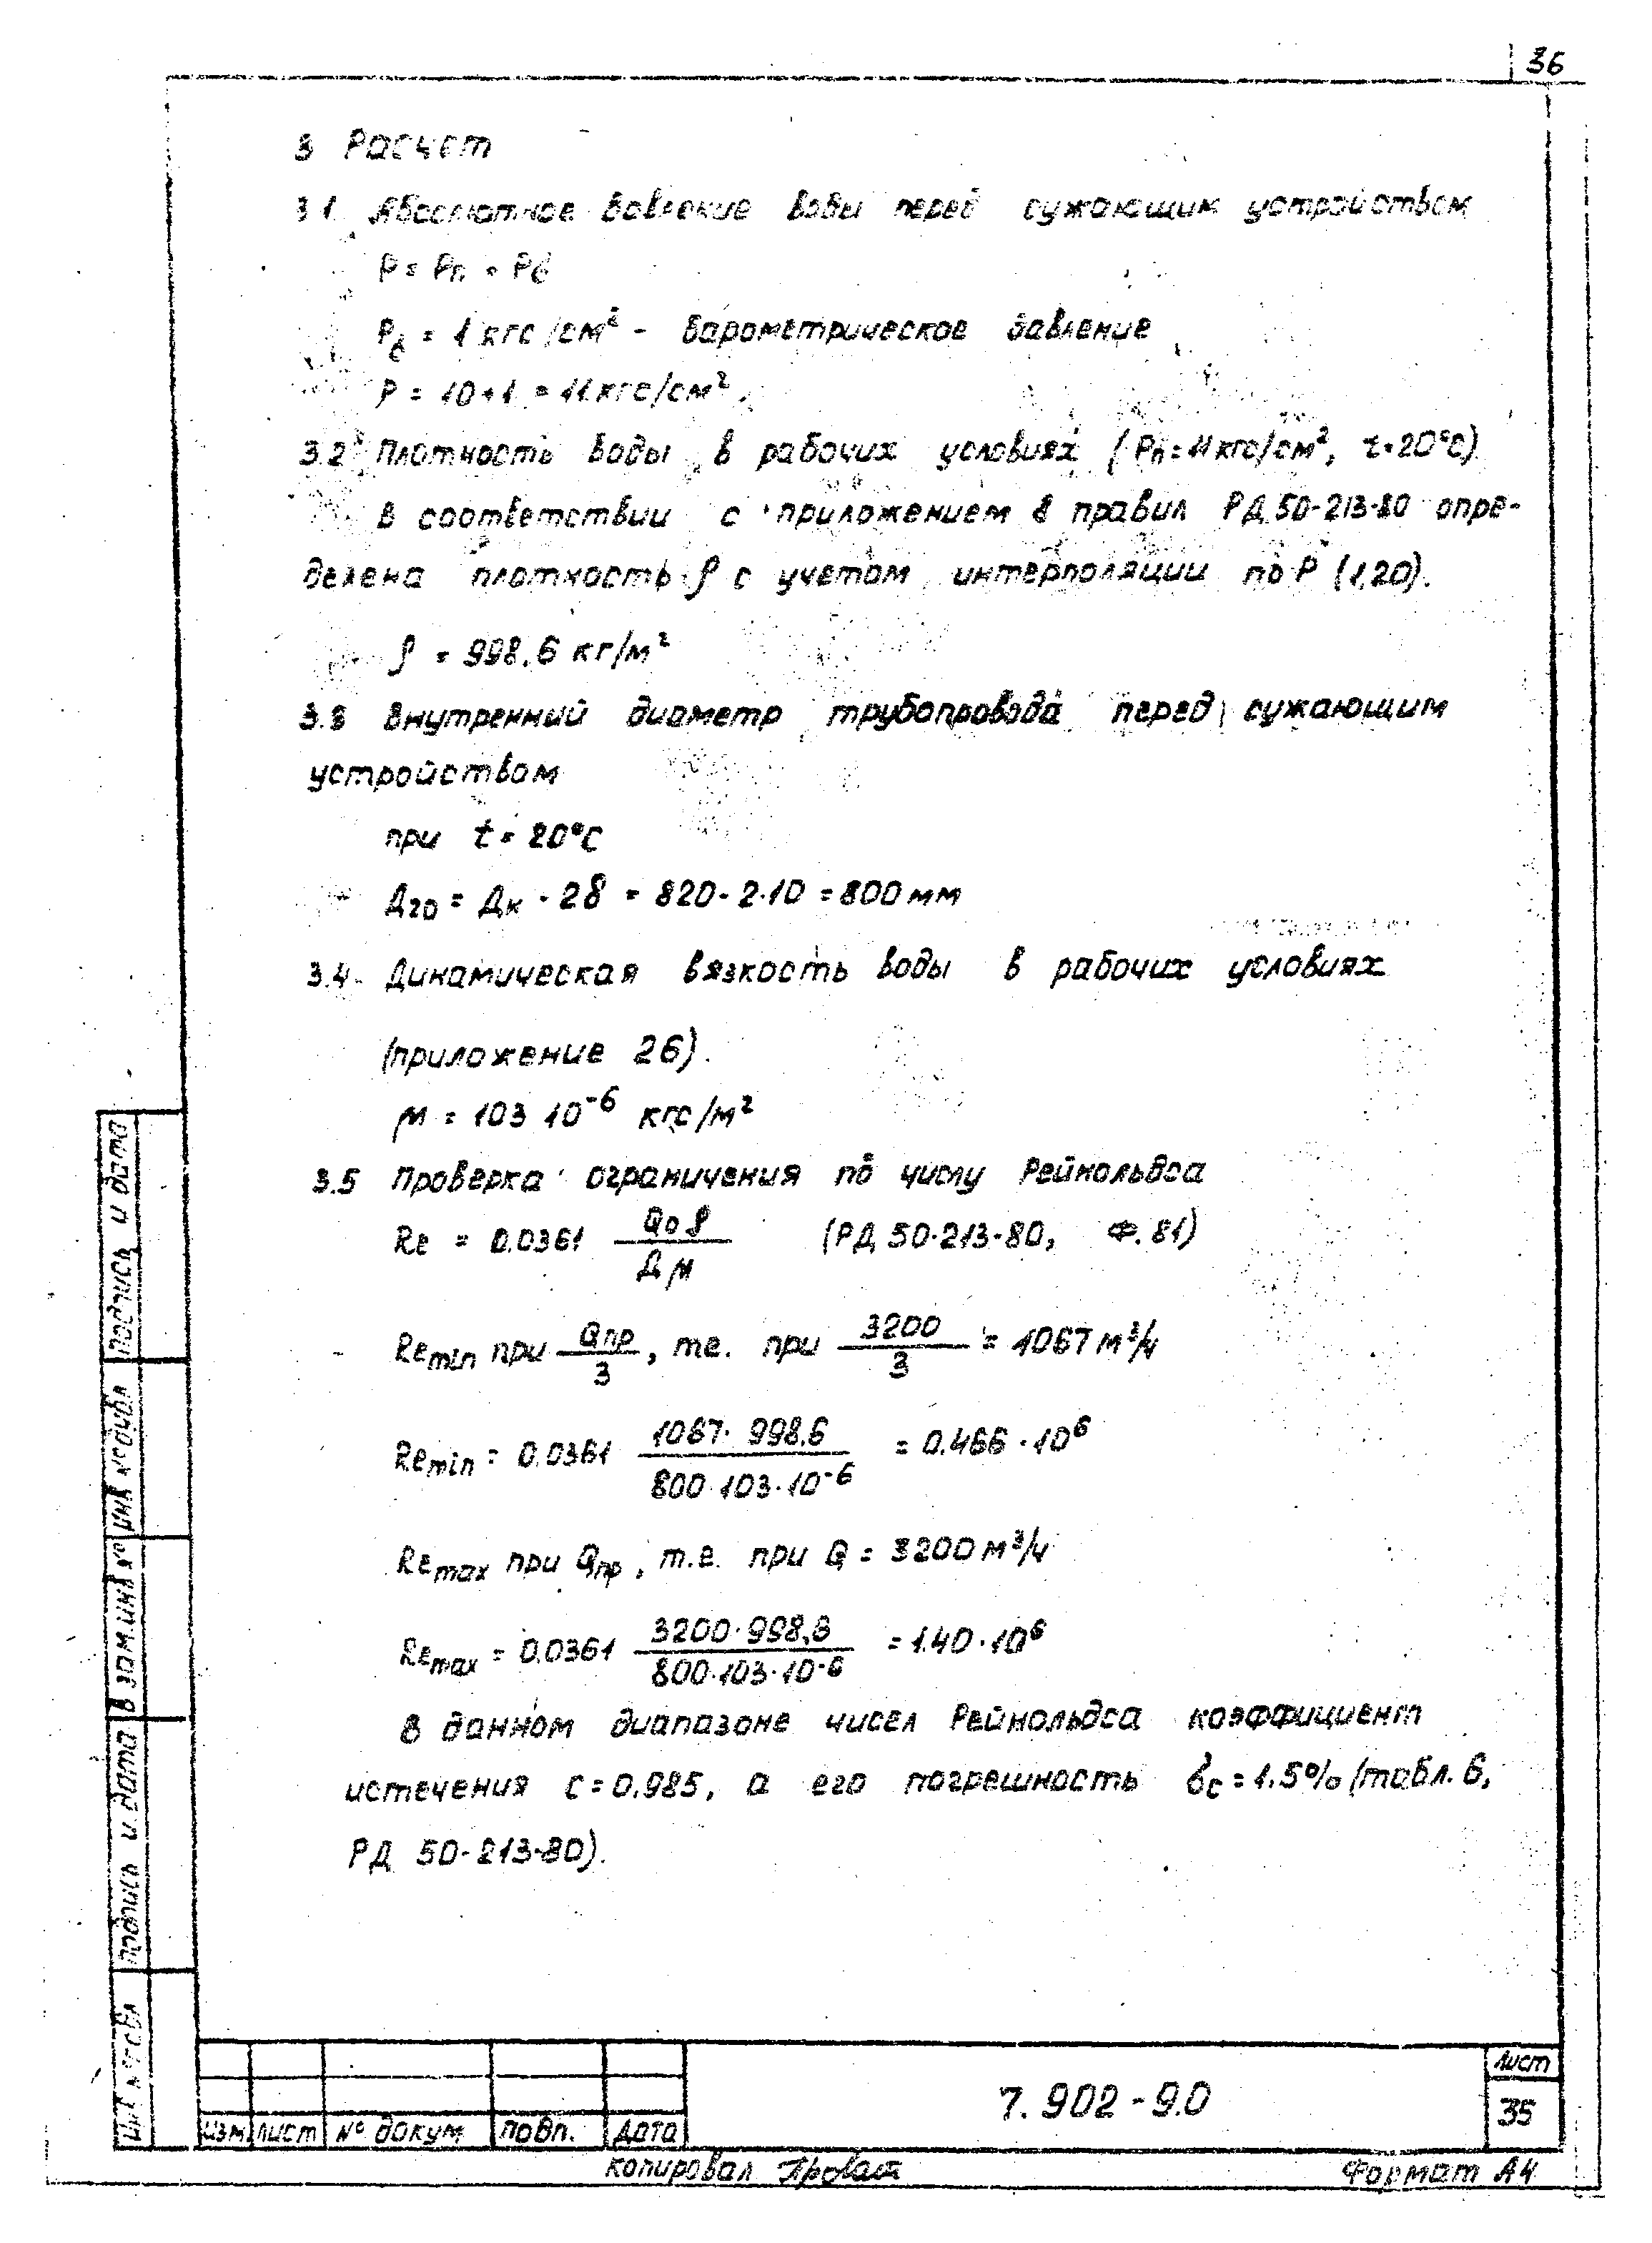 36
3 Расчет
3.1. Абсолютное давление воды перед сужающим устройством
P = Pп + Pб
Pб = 1 кгс/см² - барометрическое давление
P = 10+1 = 11 кгс/см².
3.2 Плотность воды в рабочих условиях (Pп = 11 кгс/см², t = 20°С)
В соответствии с приложением 8 правил РД 50-213-80 опре-
делена плотность ρ с учетом интерполяции по P (1,20).
ρ = 998,6 кг/м²
3.3 Внутренний диаметр трубопровода перед сужающим
устройством
при t = 20°С
Д20 = Дк - 2δ = 820 - 2·10 = 800 мм
3.4. Динамическая вязкость воды в рабочих условиях
(приложение 26).
μ = 103 10⁻⁶ кгс/м²
3.5 Проверка ограничения по числу Рейнольдса
Re = 0.0361 Qо ρ / Д μ (РД 50-213-80, Ф. 81)
Remin при Qпр / 3, т.е. при 3200 / 3 = 1067 м³/ч
Remin = 0.0361 1067 · 998,6 / 800 · 103 · 10⁻⁶ = 0.466 · 10⁶
Remax при Qпр, т.е. при Q = 3200 м³/ч
Remax = 0.0361 3200 · 998,6 / 800 · 103 · 10⁻⁶ = 1.40 · 10⁶
В данном диапазоне чисел Рейнольдса коэффициент
истечения С = 0.985, а его погрешность бс = 1.5% (табл. 6,
РД 50-213-80).
Подпись и дата
Инв № дубл
Взам. инв №
Подпись и дата
Инв № подл
Изм Лист № докум Подп. Дата
7.902-9.0
Лист
35
Копировал
Формат А4